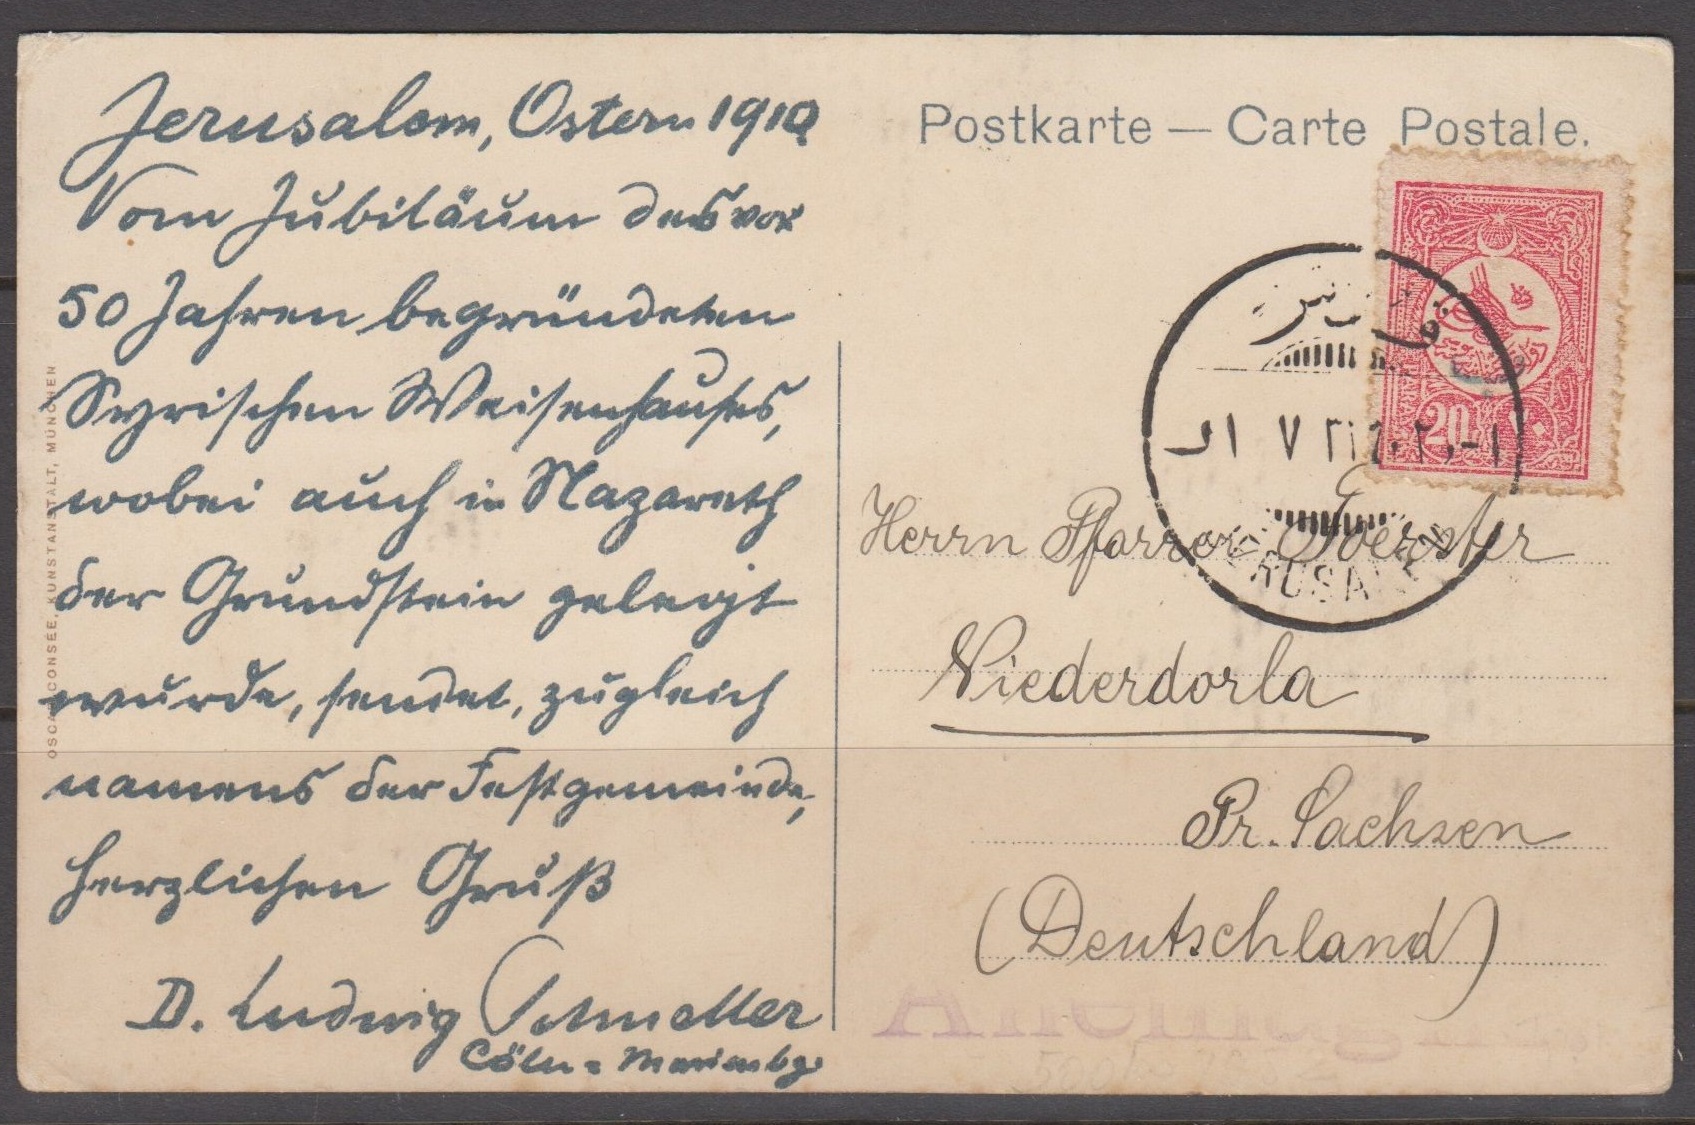 Jerusalem, Ostern 1910
Vom Jubiläum des vor
50 Jahren begründeten
Syrischen Waisenhauses,
wobei auch in Nazareth
der Grundstein gelegt
wurde, sendet, zugleich
namens der Festgemeinde,
herzlichen Gruß
D. Ludwig Schneller
Cöln-Marienbg.
OSCAR CONSEE, KUNSTANSTALT, MÜNCHEN
Postkarte — Carte Postale.
20
JERUSALEM
Herrn Pfarrer
Niederdorla
Pr. Sachsen
(Deutschland)
Allemagne.